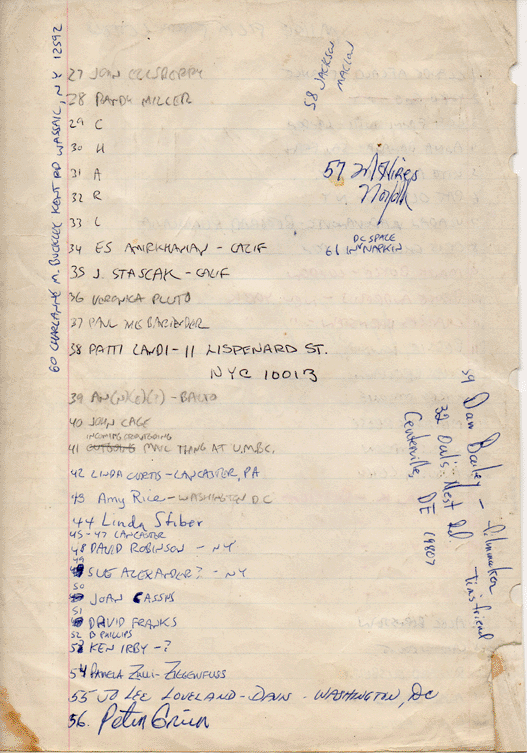 27 JOAN ELLSBERRY
28 RANDY MILLER
29 C
30 H
31 A
32 R
33 L
34 ES AMIRKHANIAN - CALIF
35 J. STASCAK - CALIF
36 VERONICA PLUTO
37 PAUL THE BARTENDER
38 PATTI LANDI - 11 LISPENARD ST.
NYC 10013
39 AN(N)(E)(?) - BALTO
40 JOHN CAGE
INCOMING OUTGOING
41 MAIL THING AT U.M.B.C.
42 LINDA CURTIS - LANCASTER, PA
43 Amy Rice - WASHINGTON DC
44 Linda Stiber
45-47 LANCASTER
48 DAVID ROBINSON - NY
49 SUE ALEXANDER? - NY
50 JOAN CASSIS
51 DAVID FRANKS
52 B PHILLIPS
53 KEN IRBY - ?
54 PAMELA ZILLI-ZIGGENFUSS
55 JO LEE LOVELAND-DAVIS - WASHINGTON, DC
56. Peter Green
57
58 JACKSON
MACLOW
59 Dan Bailey - filmmaker
32 Owls Nest Rd Tim's friend
Centerville, DE 19807
60 CHARLANNE M. BUCKLEY KENT RD WASSAIC, NY 12592
DC SPACE
61 IN NAPKIN